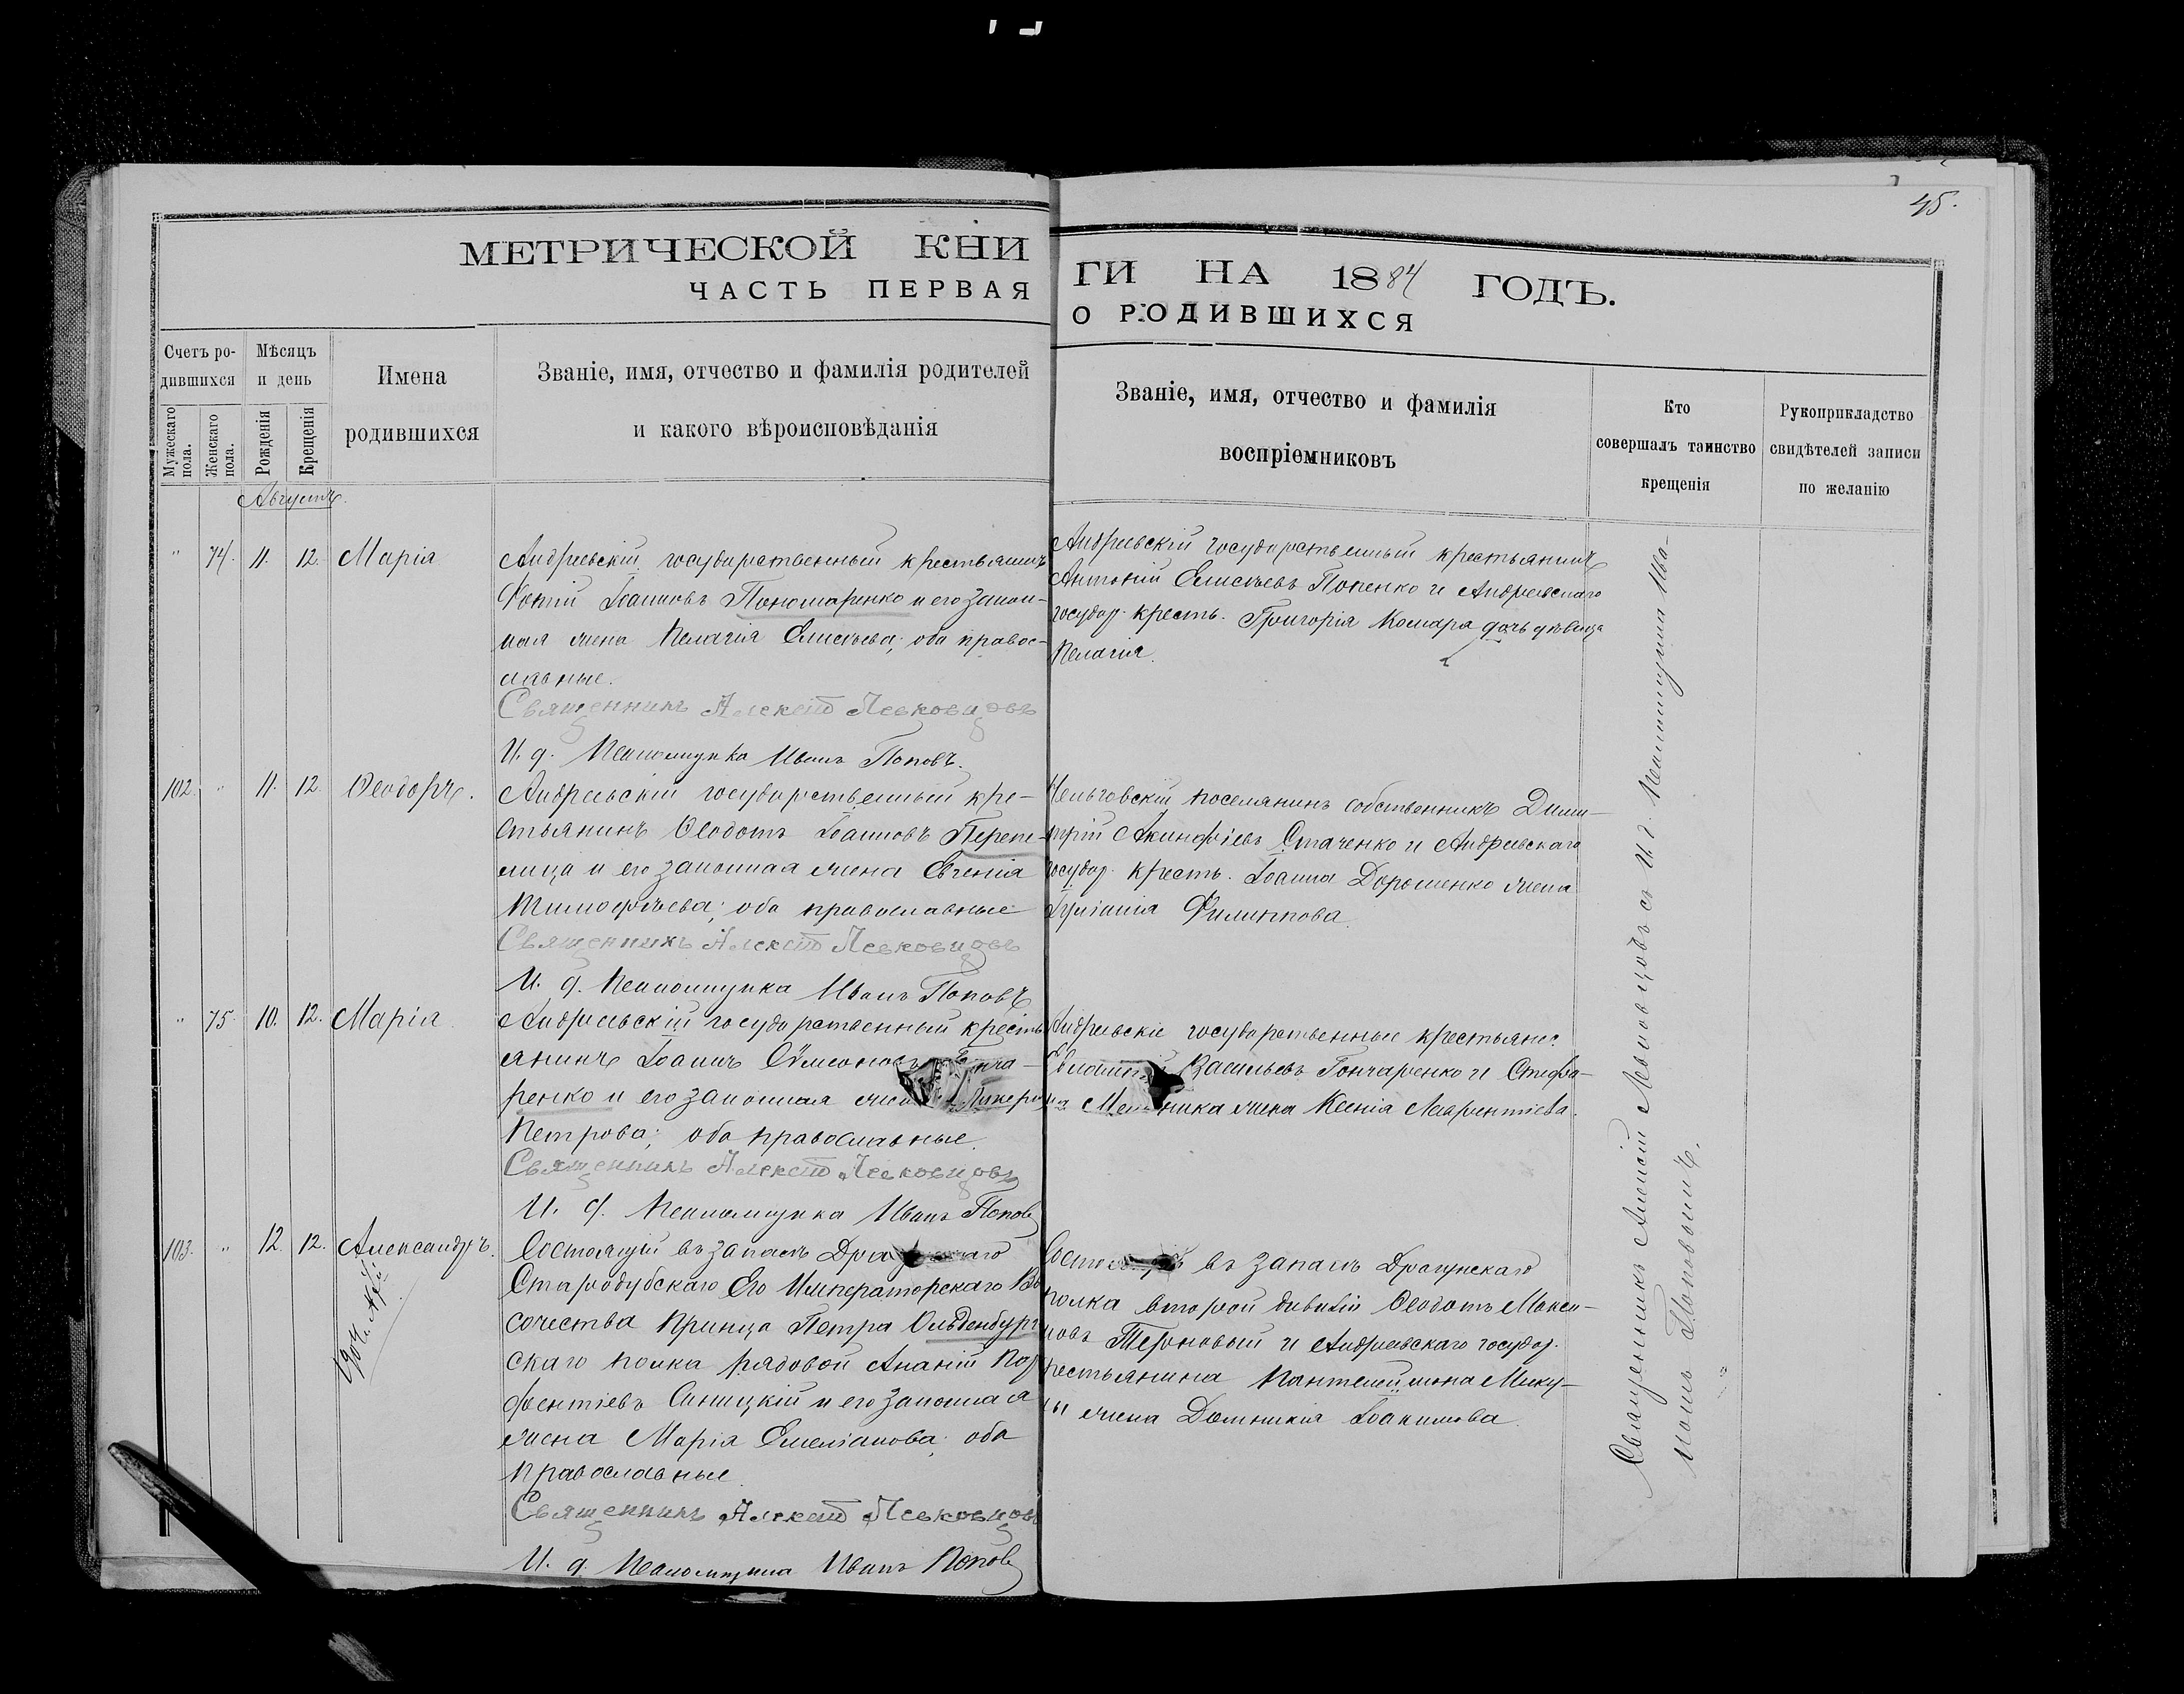 45.
МЕТРИЧЕСКОЙ КНИГИ НА 1884 ГОДЪ.
ЧАСТЬ ПЕРВАЯ О РОДИВШИХСЯ
Счетъ родившихся
Мужескаго пола.
Женскаго пола.
Мѣсяцъ и день
Рожденія
Крещенія
Имена родившихся
Званіе, имя, отчество и фамилія родителей
и какого вѣроисповѣданія
Званіе, имя, отчество и фамилія
воспріемниковъ
Кто
совершалъ таинство
крещенія
Рукоприкладство
свидѣтелей записи
по желанію
Августъ.
" 74. 11. 12. Марія
Андреевскій государственный крестьянинъ
Фотій Іоанновъ Пономаренко и его закон-
ная жена Пелагія Елисѣева; оба правос-
лавные.
Священникъ Алексій Левковцовъ
И. д. Псаломщика Иванъ Поповъ.
Андреевскій государственный крестьянинъ
Антоній Елисѣевъ Попенко и Андреевскаго
государ. кресть. Григорія Комара дочь дѣвица
Пелагія.
102. " 11. 12. Ѳеодоръ.
Андреевскій государственный кре-
стьянинъ Ѳеодотъ Іоанновъ Перепе-
лица и его законная жена Евгенія
Тимофѣева; оба православные
Священникъ Алексій Левковцовъ
И. д. Псаломщика Иванъ Поповъ
поселянинъ собственникъ Дими-
трій Акинфіевъ Стаченко и Андреевскаго
государ. кресть. Іоанна Дорошенко жена
Іуліанія Филиппова.
" 75. 10. 12. Марія
Андреевскій государственный кресть-
янинъ Іоаннъ Сѵмеоновъ
ренко и его законная жена Гликерія
Петрова; оба православные.
Священникъ Алексій Левковцовъ
И. д. Псаломщика Иванъ Поповъ
Андреевскіе государственные крестьяне:
Васильевъ Гончаренко и Стефа-
на Мельника жена Ксенія Лаврентіева.
103. " 12. 12. Александръ.
Состоящій въ запасѣ
Стародубскаго Его Императорскаго Вы-
сочества Принца Петра Ольденбург-
скаго полка рядовой Ананій Пор-
фентіевъ Синицкій и его законная
жена Марія Емеліанова; оба
православные
Священникъ Алексій Левковцовъ
И. д. Псаломщика Иванъ Поповъ
въ запасѣ Драгунскаго
полка второй дивизіи Ѳеодотъ Макси-
мовъ Терновый и Андреевскаго государ.
крестьянина Пантелеймона Мику-
лы жена Домникія Іоакимова.
Священникъ Алексій Левковцовъ съ И. д. Псаломщика Ива-
номъ Поповымъ.